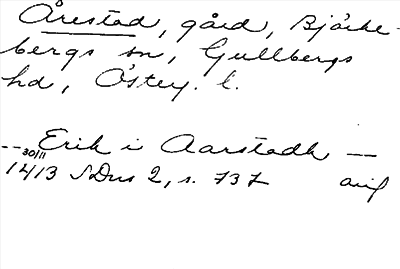 Årestad, gård, Bjärke-
bergs sn, Gullbergs
hd, Östg. l.
-- Erik i Aarstadh —
30/11
1413 SDns 2, s. 737 avs